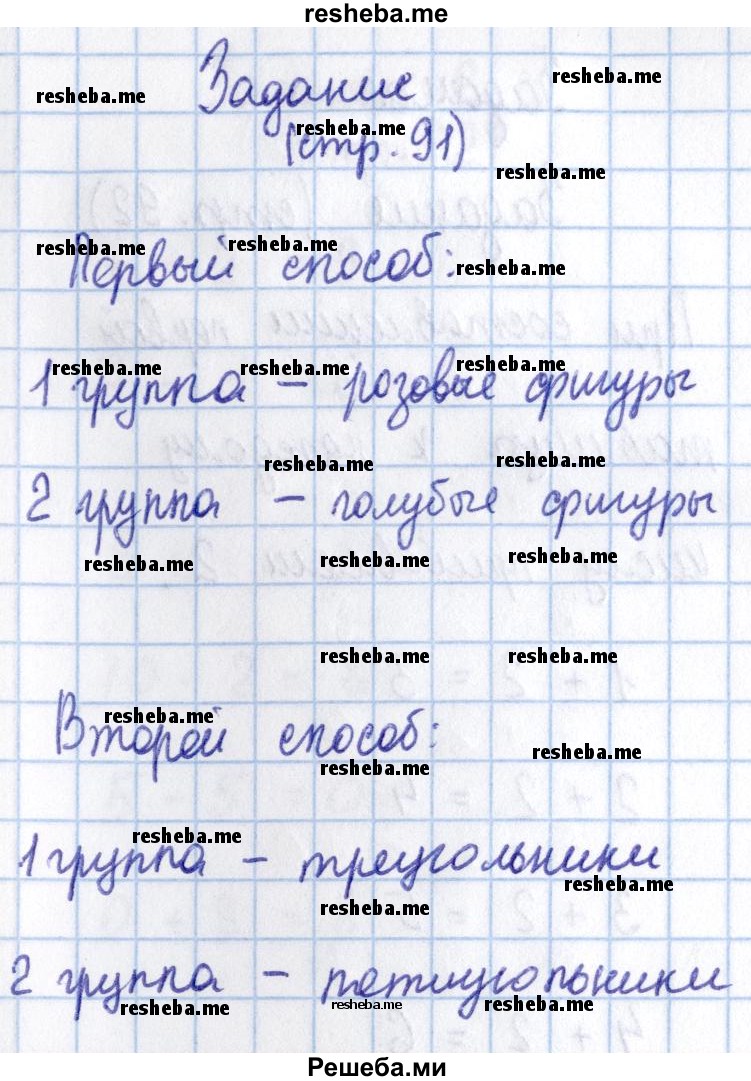 resheba.me
resheba.me
resheba.me
Задание
resheba.me
(стр. 91)
resheba.me
resheba.me resheba.me
Первый способ:
resheba.me
resheba.me resheba.me resheba.me
1 группа – розовые фигуры
resheba.me resheba.me
2 группа – голубые фигуры
resheba.me resheba.me resheba.me
resheba.me resheba.me
resheba.me
Второй способ:
resheba.me
resheba.me
resheba.me
1 группа – треугольники
resheba.me
resheba.me
2 группа – пятиугольники
resheba.me resheba.me resheba.me
Решеба.ми